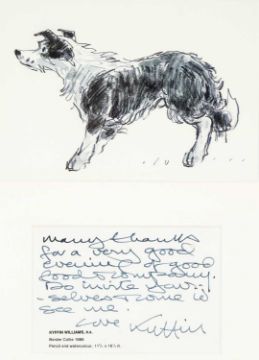 many thanks
for a very good
evening of good
food & company.
Do invite your-
-selves & come to
see me.
love Kyffin
KYFFIN WILLIAMS, R.A.
Border Collie 1986
Pencil and watercolour